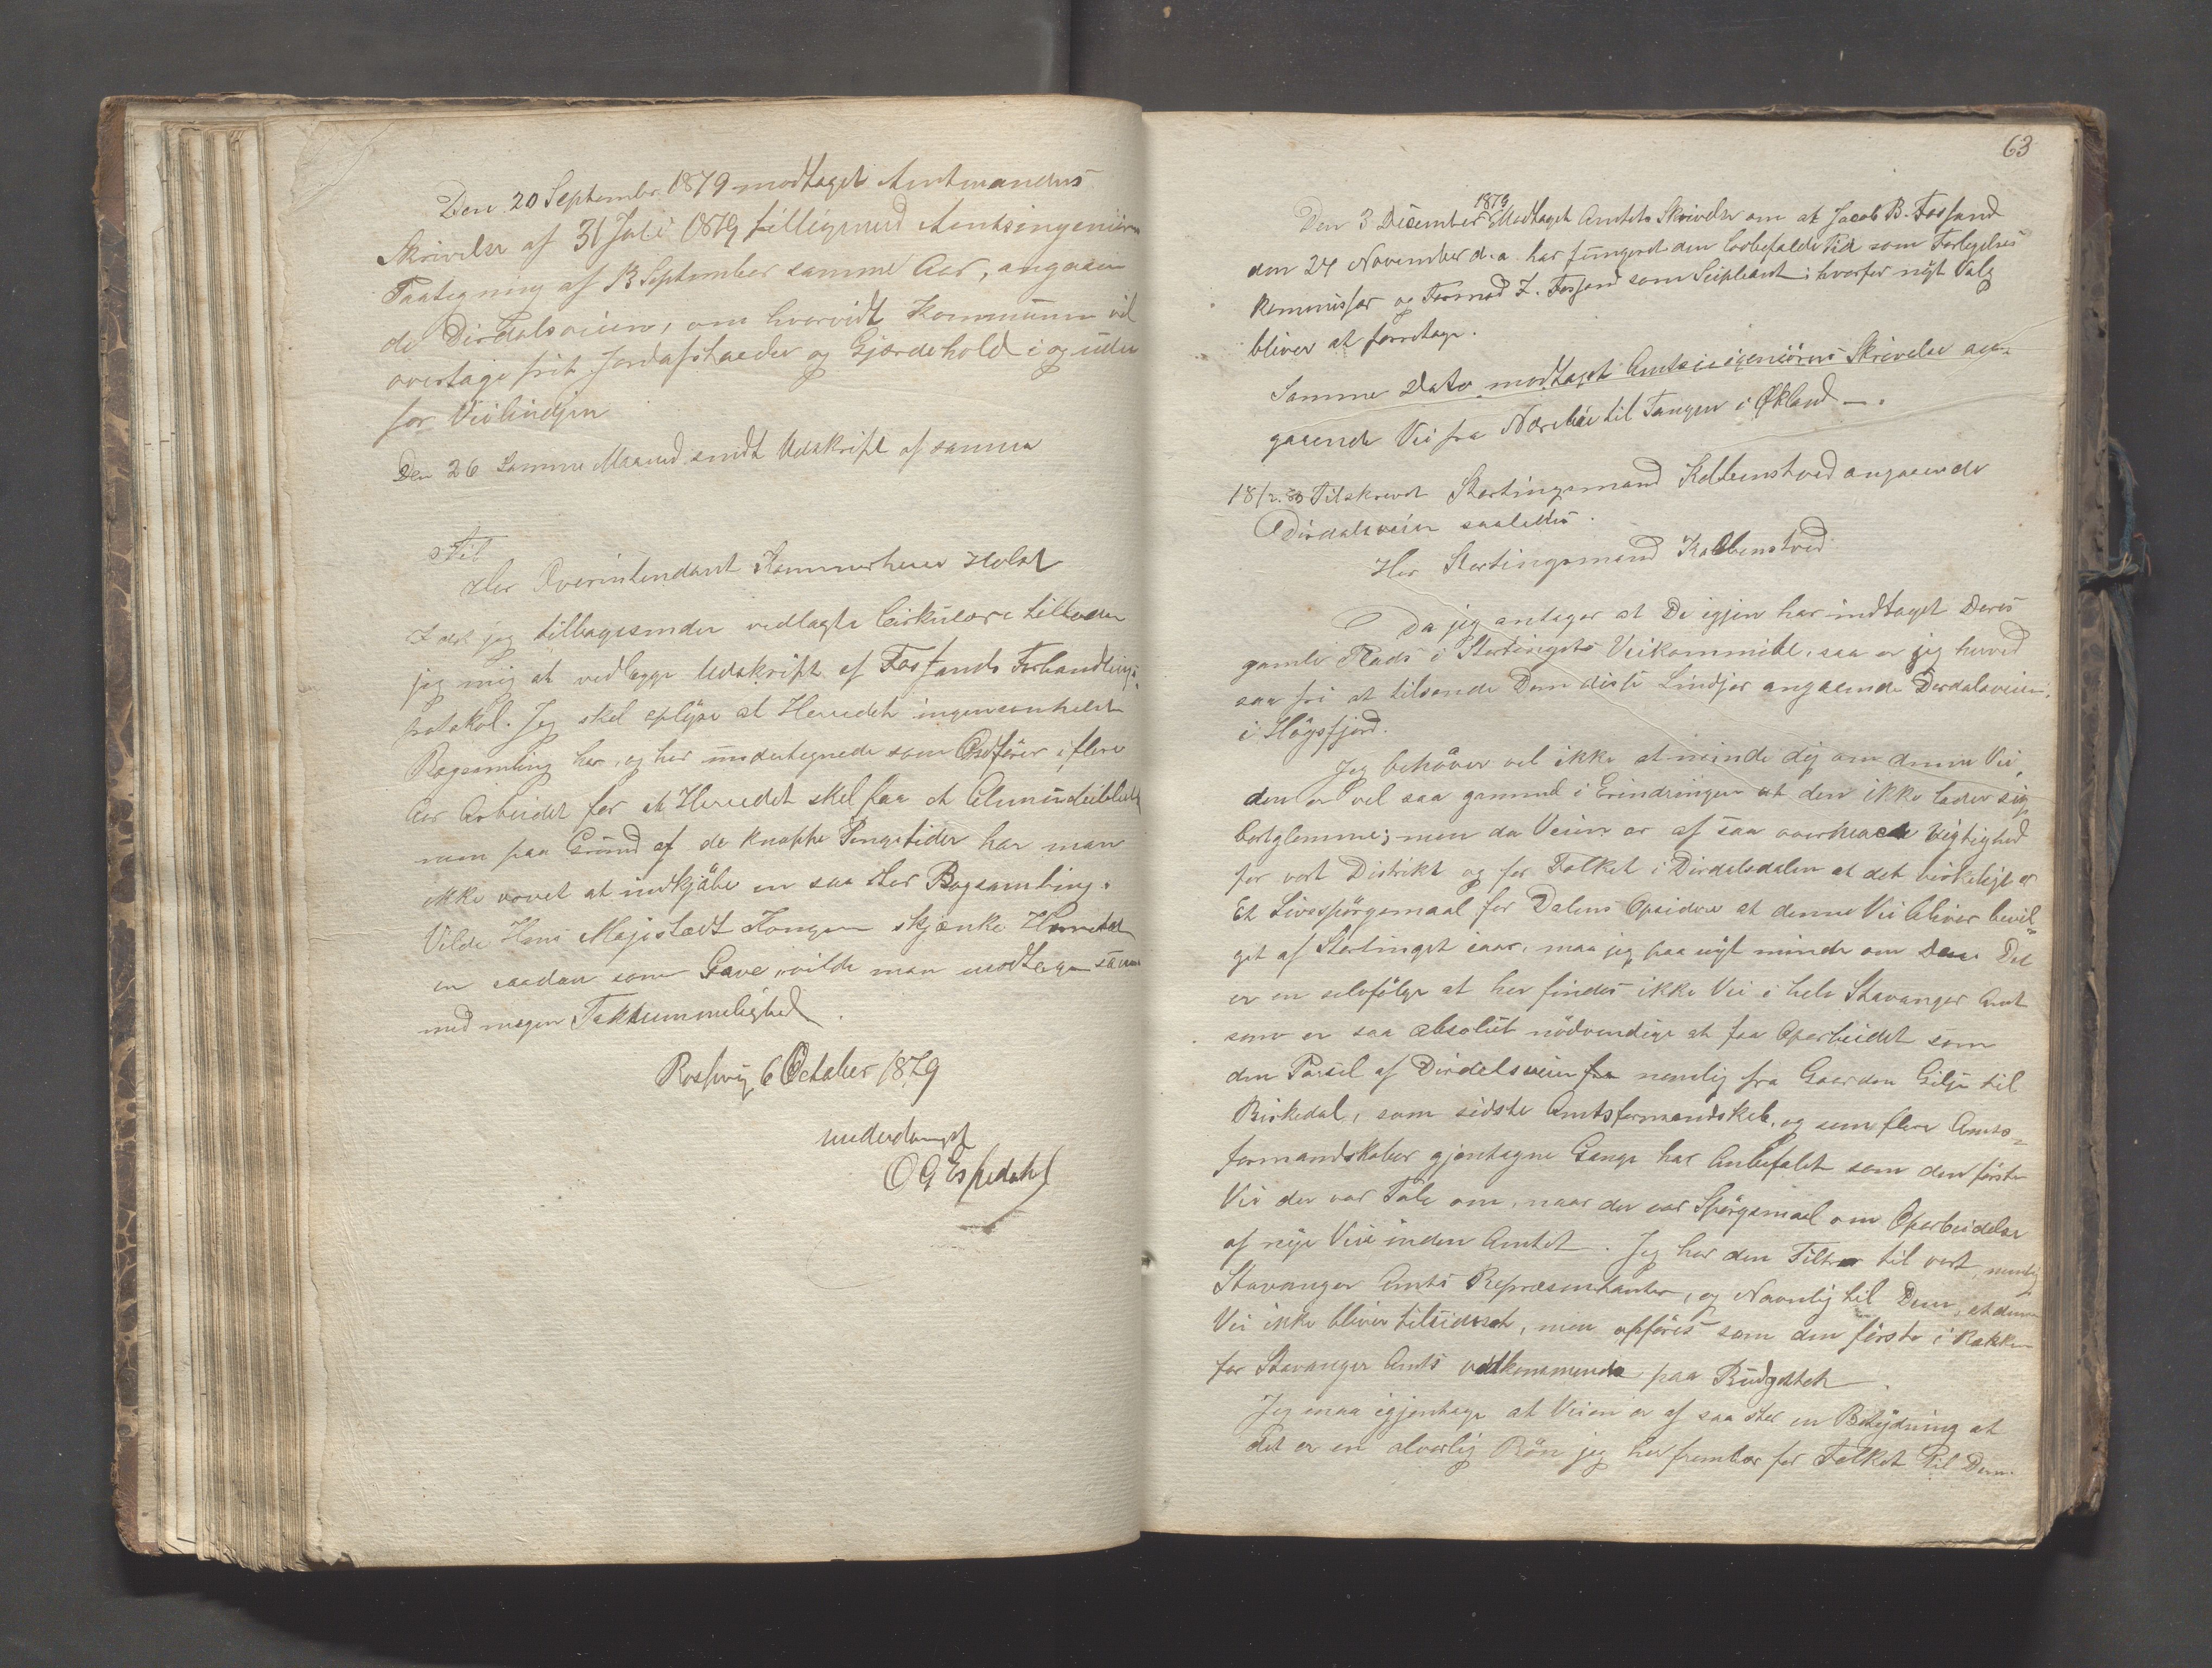 Den 20 September 1879 modtaget Amtmandens
Skrivelse af 31 Juli 1879 tilligemed Amtsingeniörens
Paategning af 13 September samme Aar, angaaen
de Dirdalsveien, om hvorvidt Kommunen vil
overtage frit Jordafstaaelse og Gjærdehold i og uden
for Veilindjen
Den 26 samme Maaned sendt Udskrift af samme
Til
Her Overintendant Kammerherre Holst
Idet jeg tilbagesender vedlagte Cirkulære tillader
jeg mig at vedlægge Udskrift af Fossands Forhandlings
protokol. Jeg skal oplyse at Herredet ingensomhelst
Bogsamling har, og har undertegnede som Ordförer i flere
Aar Arbeidet for at Herredet skal faa et Almuebibliothek
men paa Grund af de knappe Pengetider har man
ikke vovet at indkjöbe en saa stor Bogsamling.
Vilde Hans Majestædt Kongen skjænke Herredet
en saadan som Gave, vilde man modtage samme
med megen Taknemmelighed.
Rossavig 6 October 1879
underdanigst
O G Espedahl
63
Den 3 December 1879 Modtaget Amtets Skrivelse om at Jacob B. Fossand
den 24 November d. a. har fungeret den lovbefalede Tid som Forligelses
kommissær og Tormod Z. Fossand som Supleant; hvorfor nyt Valg
bliver at foretage.
Samme Dato modtaget Amtsingeniörens Skrivelse an-
gaaende Vei fra Nærebö til Tangen i Økland —.
18/2. 80 Tilskrevet Stortingsmand Koltveinstved angaaende
Dirdalsveien saaledes.
Her Stortingsmand Kolbenstved
Da jeg antager at De igjen har indtaget Deres
gamle Plads i Stortingets Veikommite, saa er jeg herved
saa fri at tilsende Dem disse Lindjer angaaende Dirdalsveien
i Högsfjord.
Jeg behöver vel ikke at minde dig om denne Vei,
den er vel saa gammel i Erindringen at den ikke lader sig
bortglemme; men da Veien er af saa overhændig Vigtighed
for vort Distrikt og for Folket i Dirdalsdalen at det virkelige er
Et Livsspörgsmaal for Dalens Opsidere at denne Vei bliver bevil-
get af Stortinget iaar, maa jeg paa nyt minde om den. Det
er en selvfölge at her findes ikke Vei i hele Stavanger Amt
som er saa absolut nödvendige at faa Oparbeidet som
den Parsel af Dirdalsveien fra nemlig fra Gaarden Gilje til
Birkedal, som sidste Amtsformandskab, og som flere Amts-
formandskaber gjentagne Gange har Anbefalet som den förste
Vei der var Tale om, naar der var Spörgsmaal om Oparbeidelse
af nye Veie inden Amtet. Jeg har den Tiltro til vort, nemlig
Stavanger Amts Repræsentanter, og Navnlig til Dem, at denne
Vei ikke bliver tilsidesat, men opföres som den förste i Rækken
for Stavanger Amts vedkommende paa Budgettet.
Jeg maa igjentage at Veien er af saa stor en Betydning at
det er en alvorlig Bön jeg her frembær for Folket til Dem.